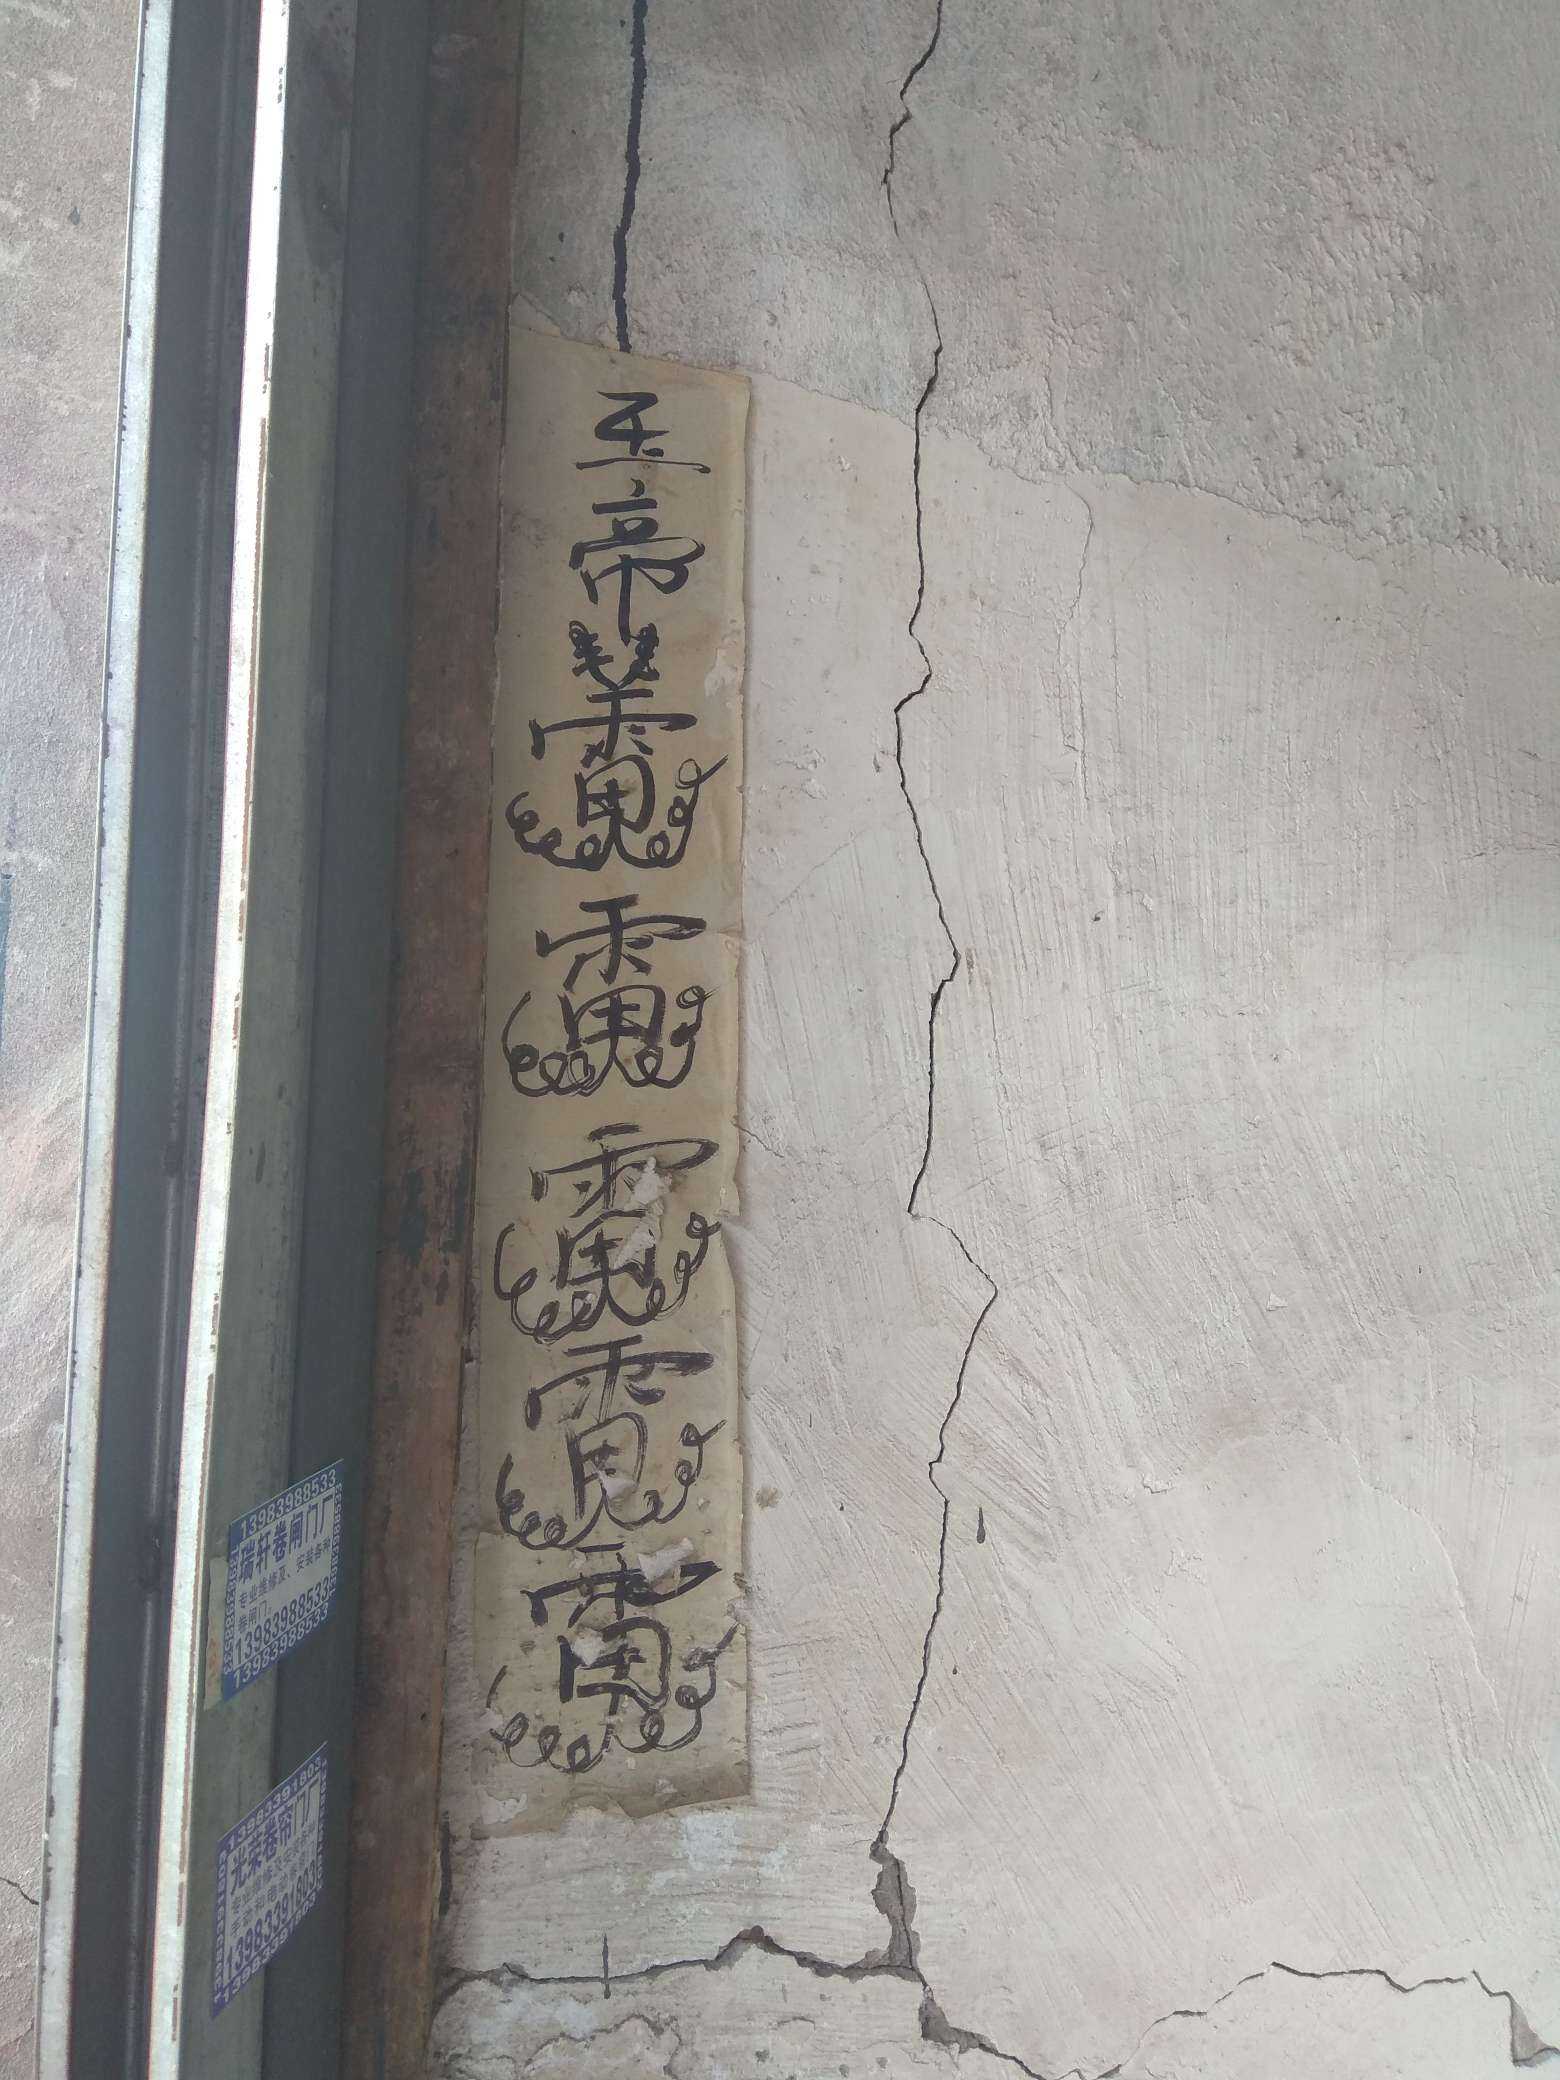 玉
帝
雷
雷
雷
雷
雷
13983988533
瑞轩卷闸门厂
专业维修及、安装各种
卷闸门。
13983988533
13983988533
13983391803
光荣卷帘门厂
13983391803
13983391803